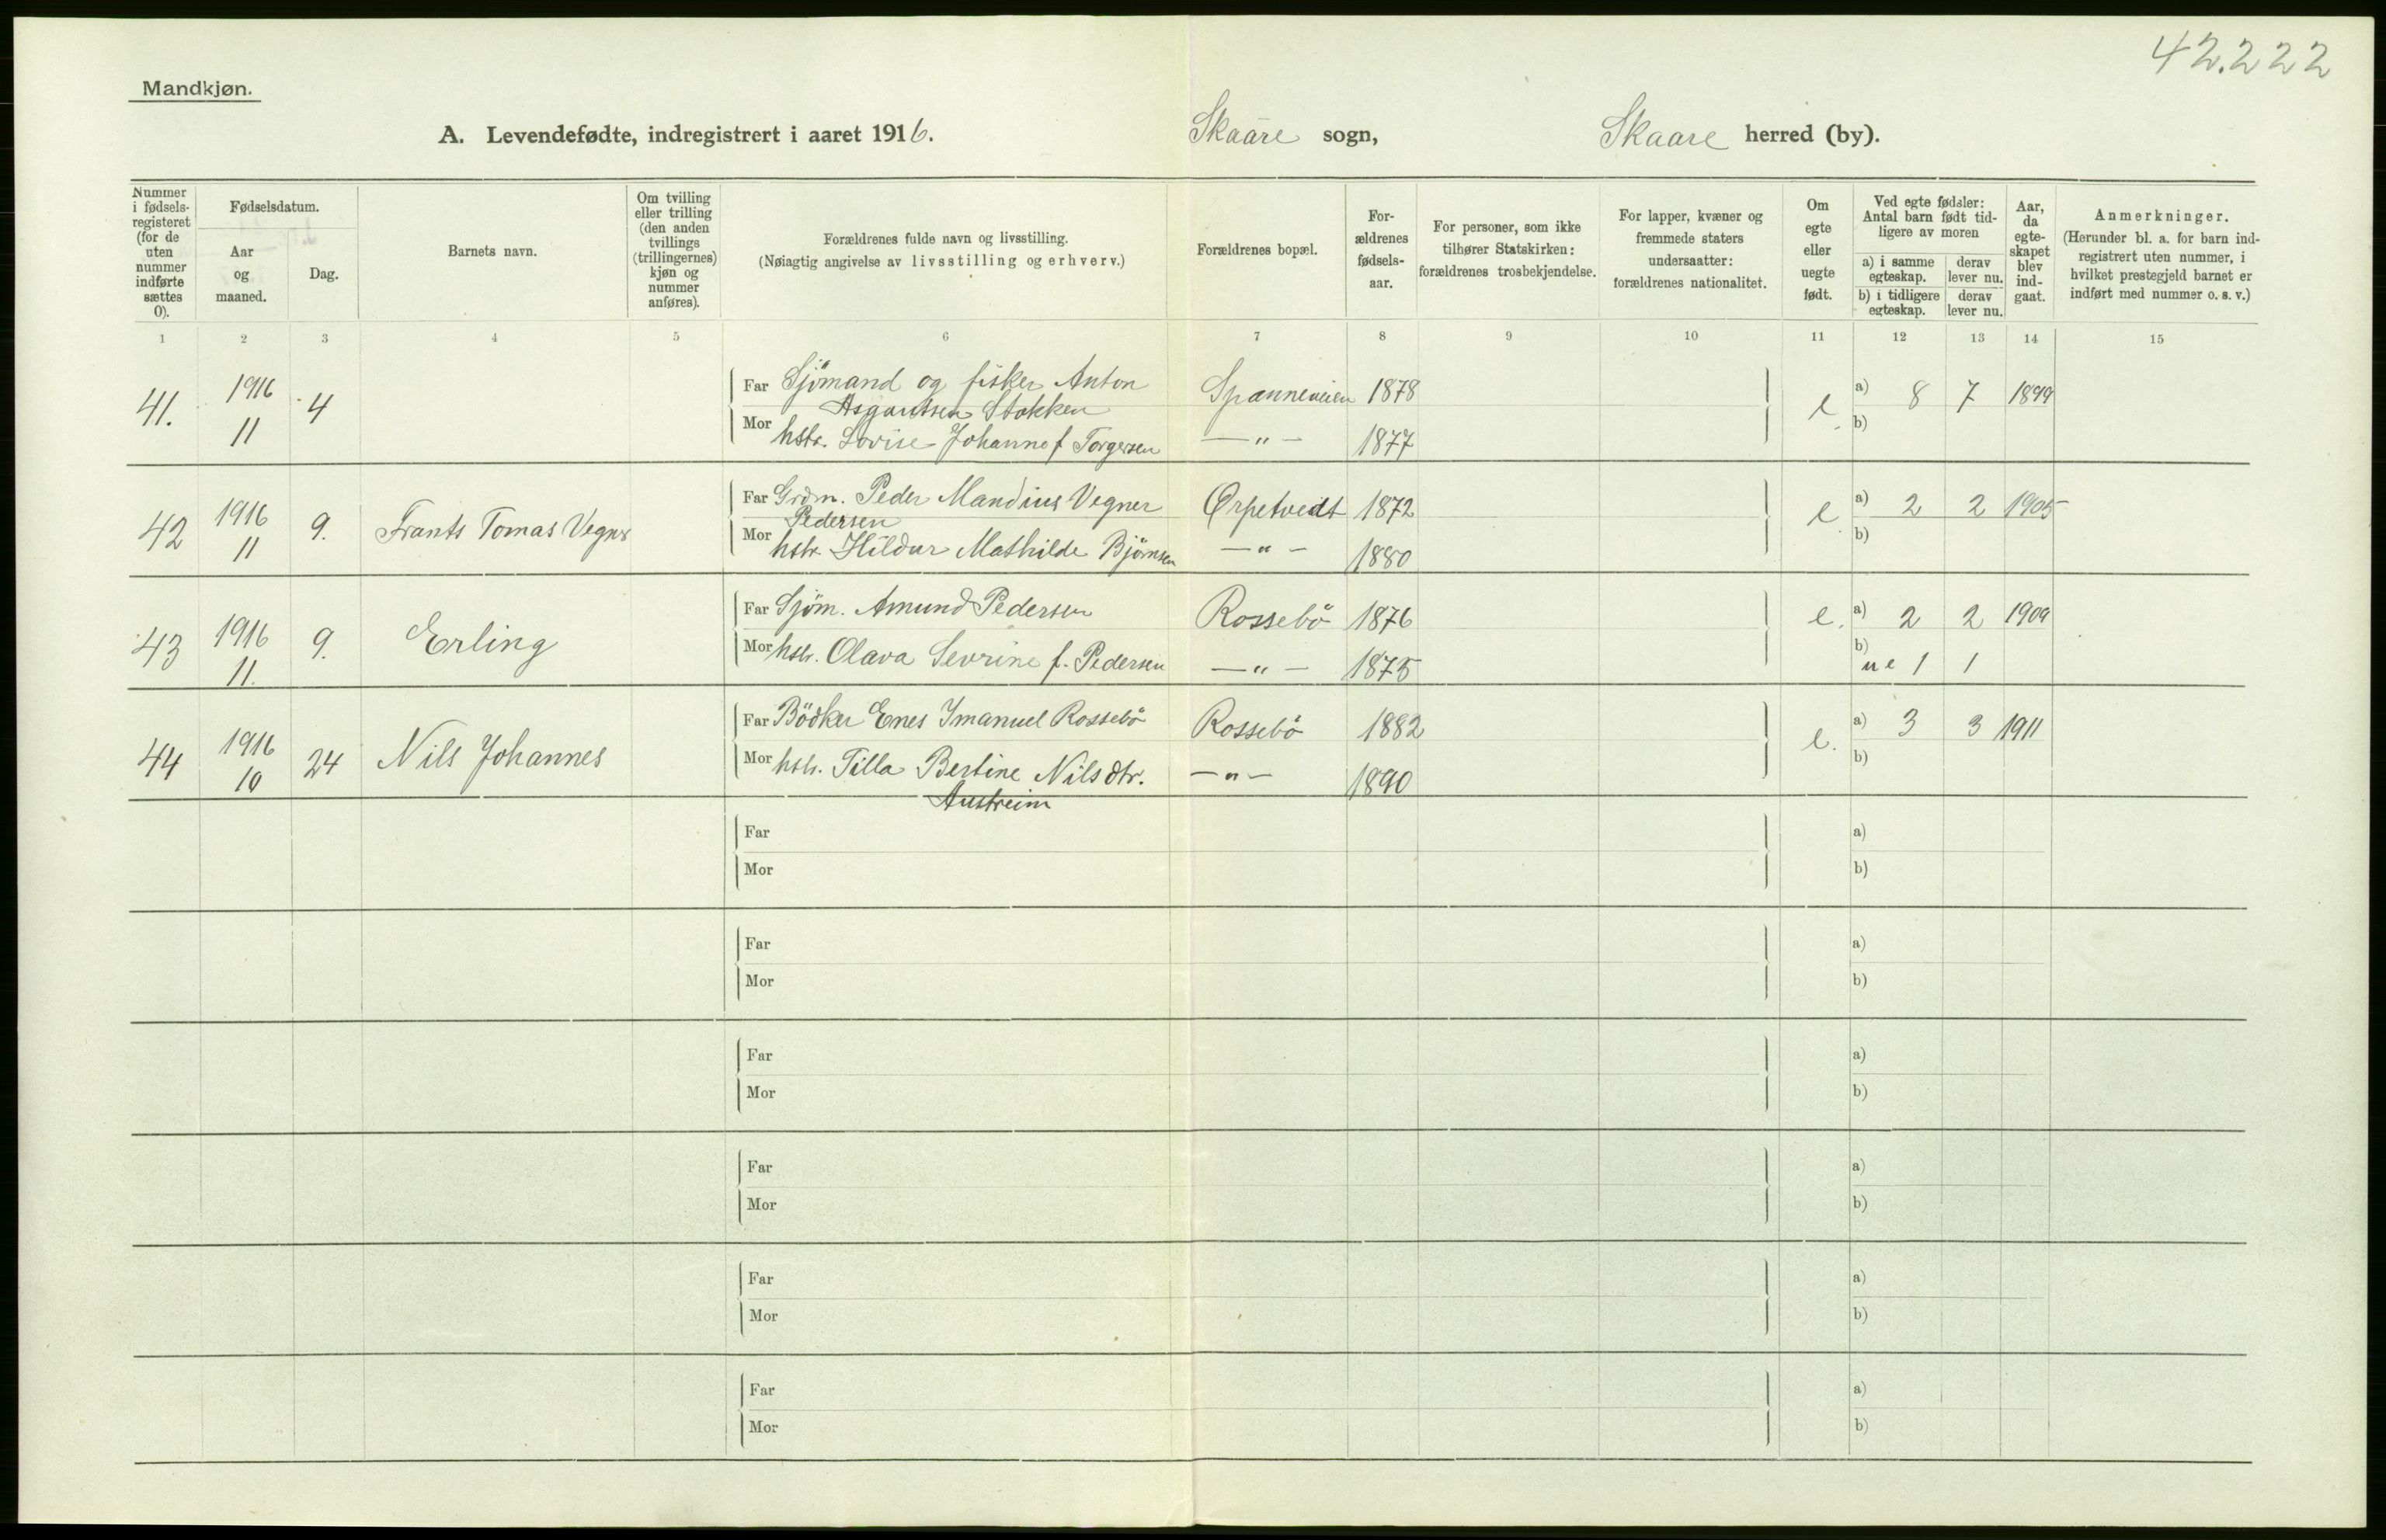 42.222
Mandkjøn.
A. Levendefødte, indregistrert i aaret 1916. Skaare sogn, Skaare herred (by).
Nummer i fødsels-registeret (for de uten nummer indførte sættes 0).
Fødselsdatum.
Aar og maaned.
Dag.
Barnets navn.
Om tvilling eller trilling (den anden tvillings (trillingernes) kjøn og nummer anføres).
Forældrenes fulde navn og livsstilling.
(Nøiagtig angivelse av livsstilling og erhverv.)
Forældrenes bopæl.
For-ældrenes fødsels-aar.
For personer, som ikke tilhører Statskirken: forældrenes trosbekjendelse.
For lapper, kvæner og fremmede staters undersaatter: forældrenes nationalitet.
Om egte eller uegte født.
Ved egte fødsler: Antal barn født tid-ligere av moren
a) i samme egteskap. derav lever nu.
b) i tidligere egteskap. derav lever nu.
Aar, da egte-skapet blev ind-gaat.
Anmerkninger.
(Herunder bl. a. for barn ind-registrert uten nummer, i hvilket prestegjeld barnet er indført med nummer o. s. v.)
1 2 3 4 5 6 7 8 9 10 11 12 13 14 15
41. 1916 11 4 Far Sjömand og fisker Anton Spanneveien 1878 e a) 8 7 1899
Stokken
Mor hstr. Lovise Johanne f Torgersen —"— 1877 b)
42 1916 11 9. Frants Tomas Vegner Far Grdm. Peder Mandius Vegner Ørpetvedt 1872 e a) 2 2 1905
Pedersen
Mor hstr. Hildur Mathilde Björnsen —"— 1880 b)
43 1916 11. 9. Erling Far Sjöm. Amund Pedersen Rossebö 1876 e. a) 2 2 1909
Mor hstr. Olava Sevrine f. Pedersen —"— 1875 b) ue 1 1
44 1916 10 24 Nils Johannes Far Bödker Enes Imanuel Rossebö Rossebö 1882 e. a) 3 3 1911
Mor hstr. Tilla Bertine Nilsdtr. —"— 1890 b)
Austreim
Far a)
Mor b)
Far a)
Mor b)
Far a)
Mor b)
Far a)
Mor b)
Far a)
Mor b)
Far a)
Mor b)